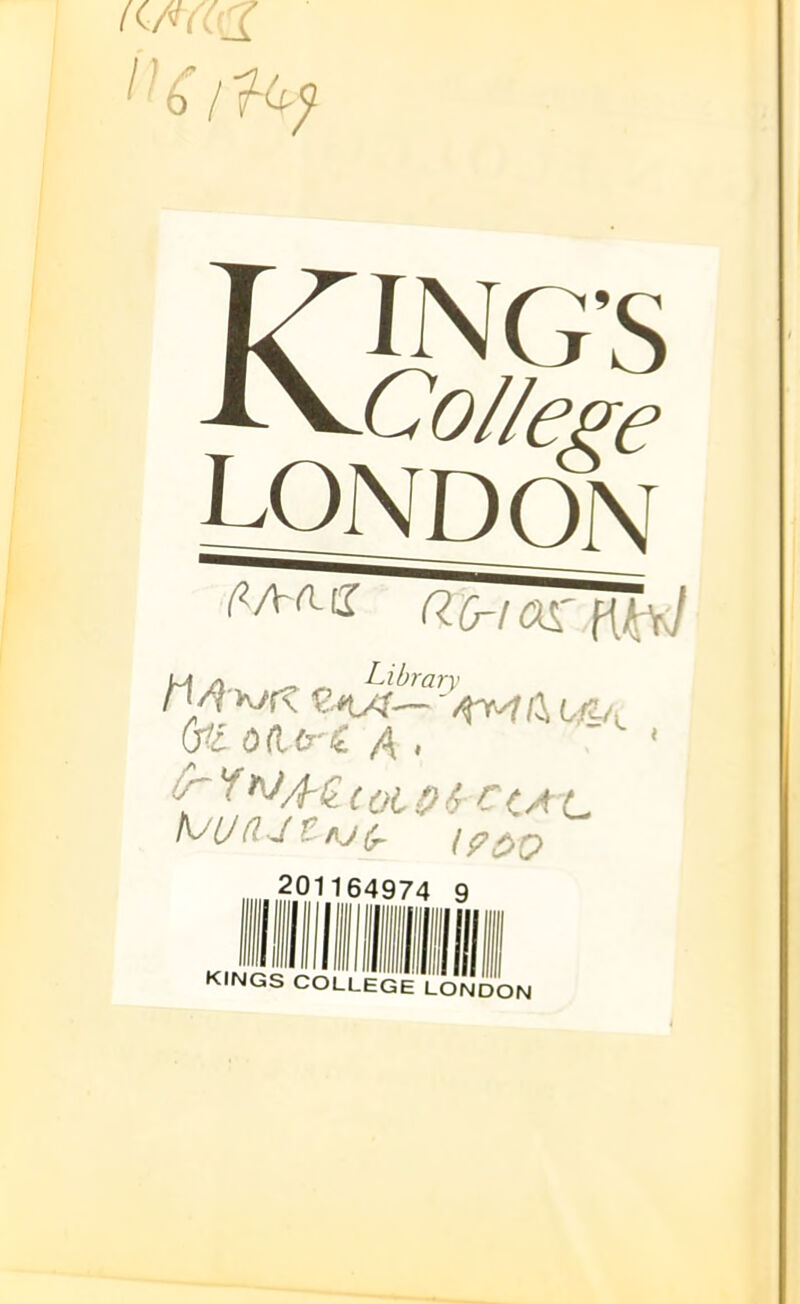 KING'S
College
LONDON
RARE RG105 HAW
Library
HAWKINS-AMBLER,
GEORGE A.
GYNAECOLOGICAL
NURSING 1900
201164974 9
KINGS COLLEGE LONDON